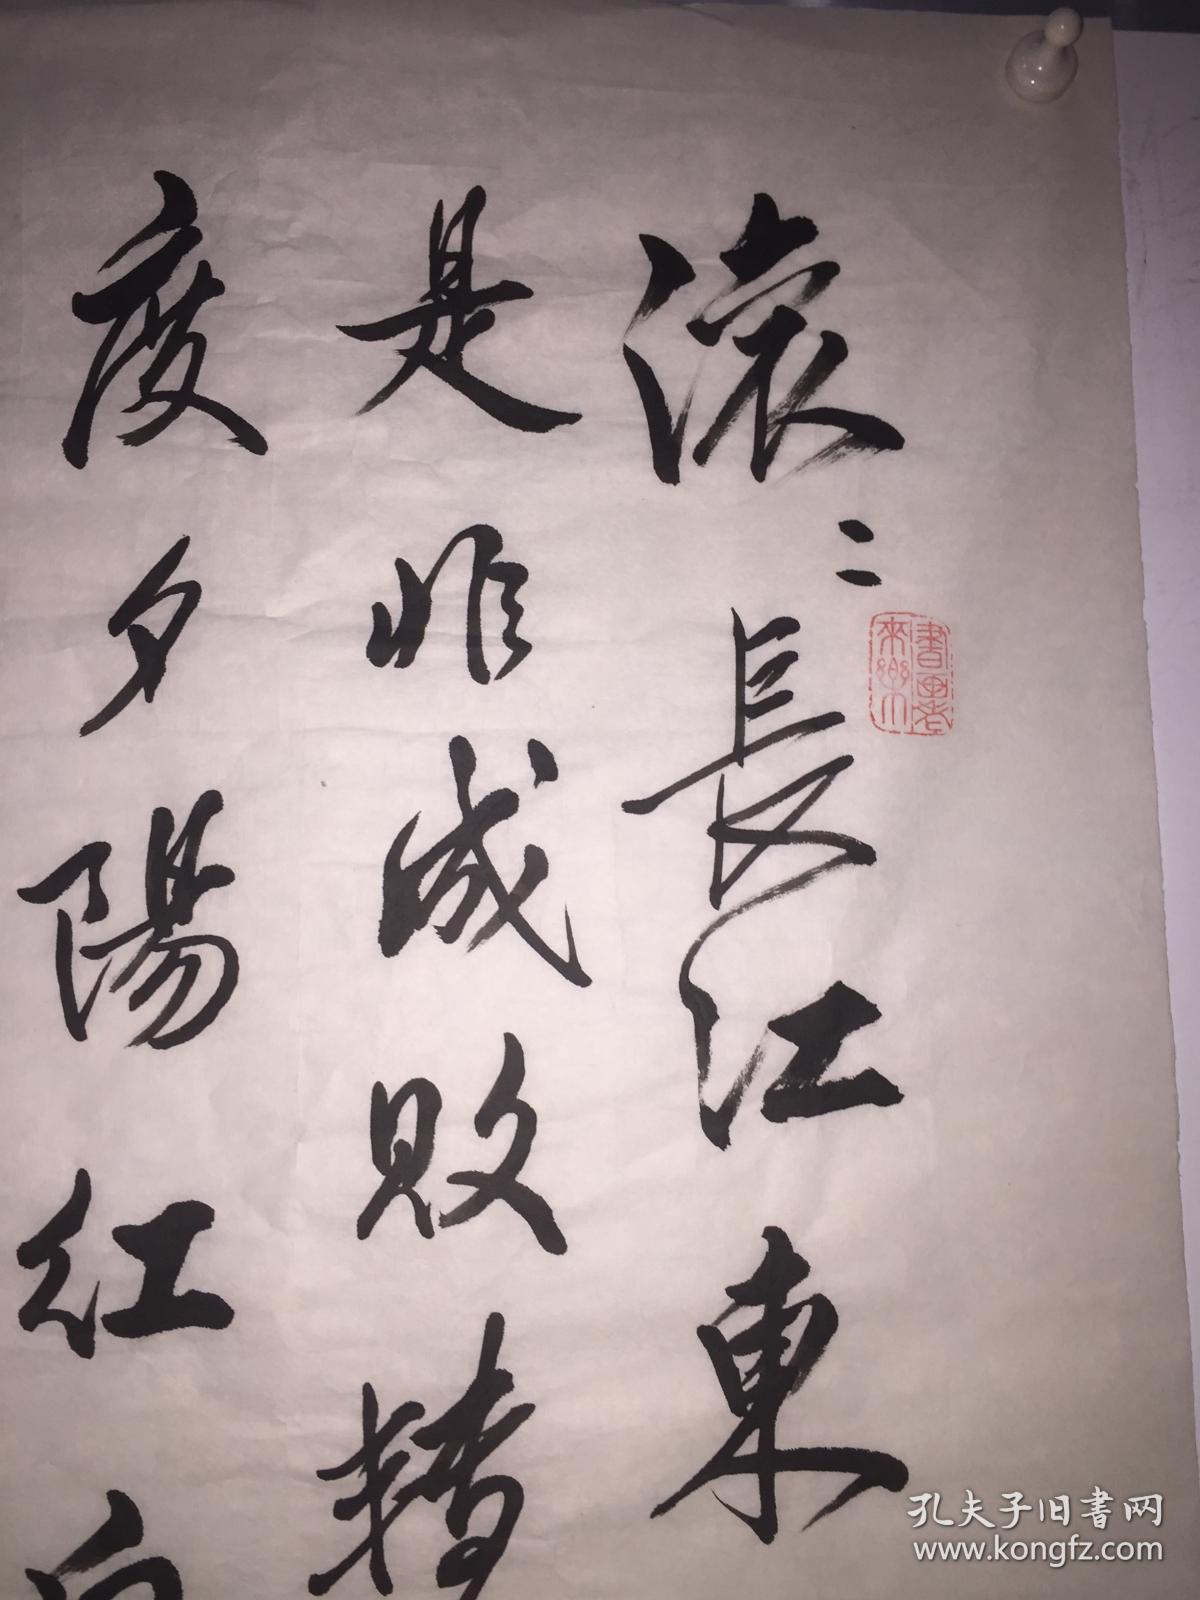 滚〻長江東
是非成敗轉
度夕陽紅白
孔夫子旧书网
www.kongfz.com